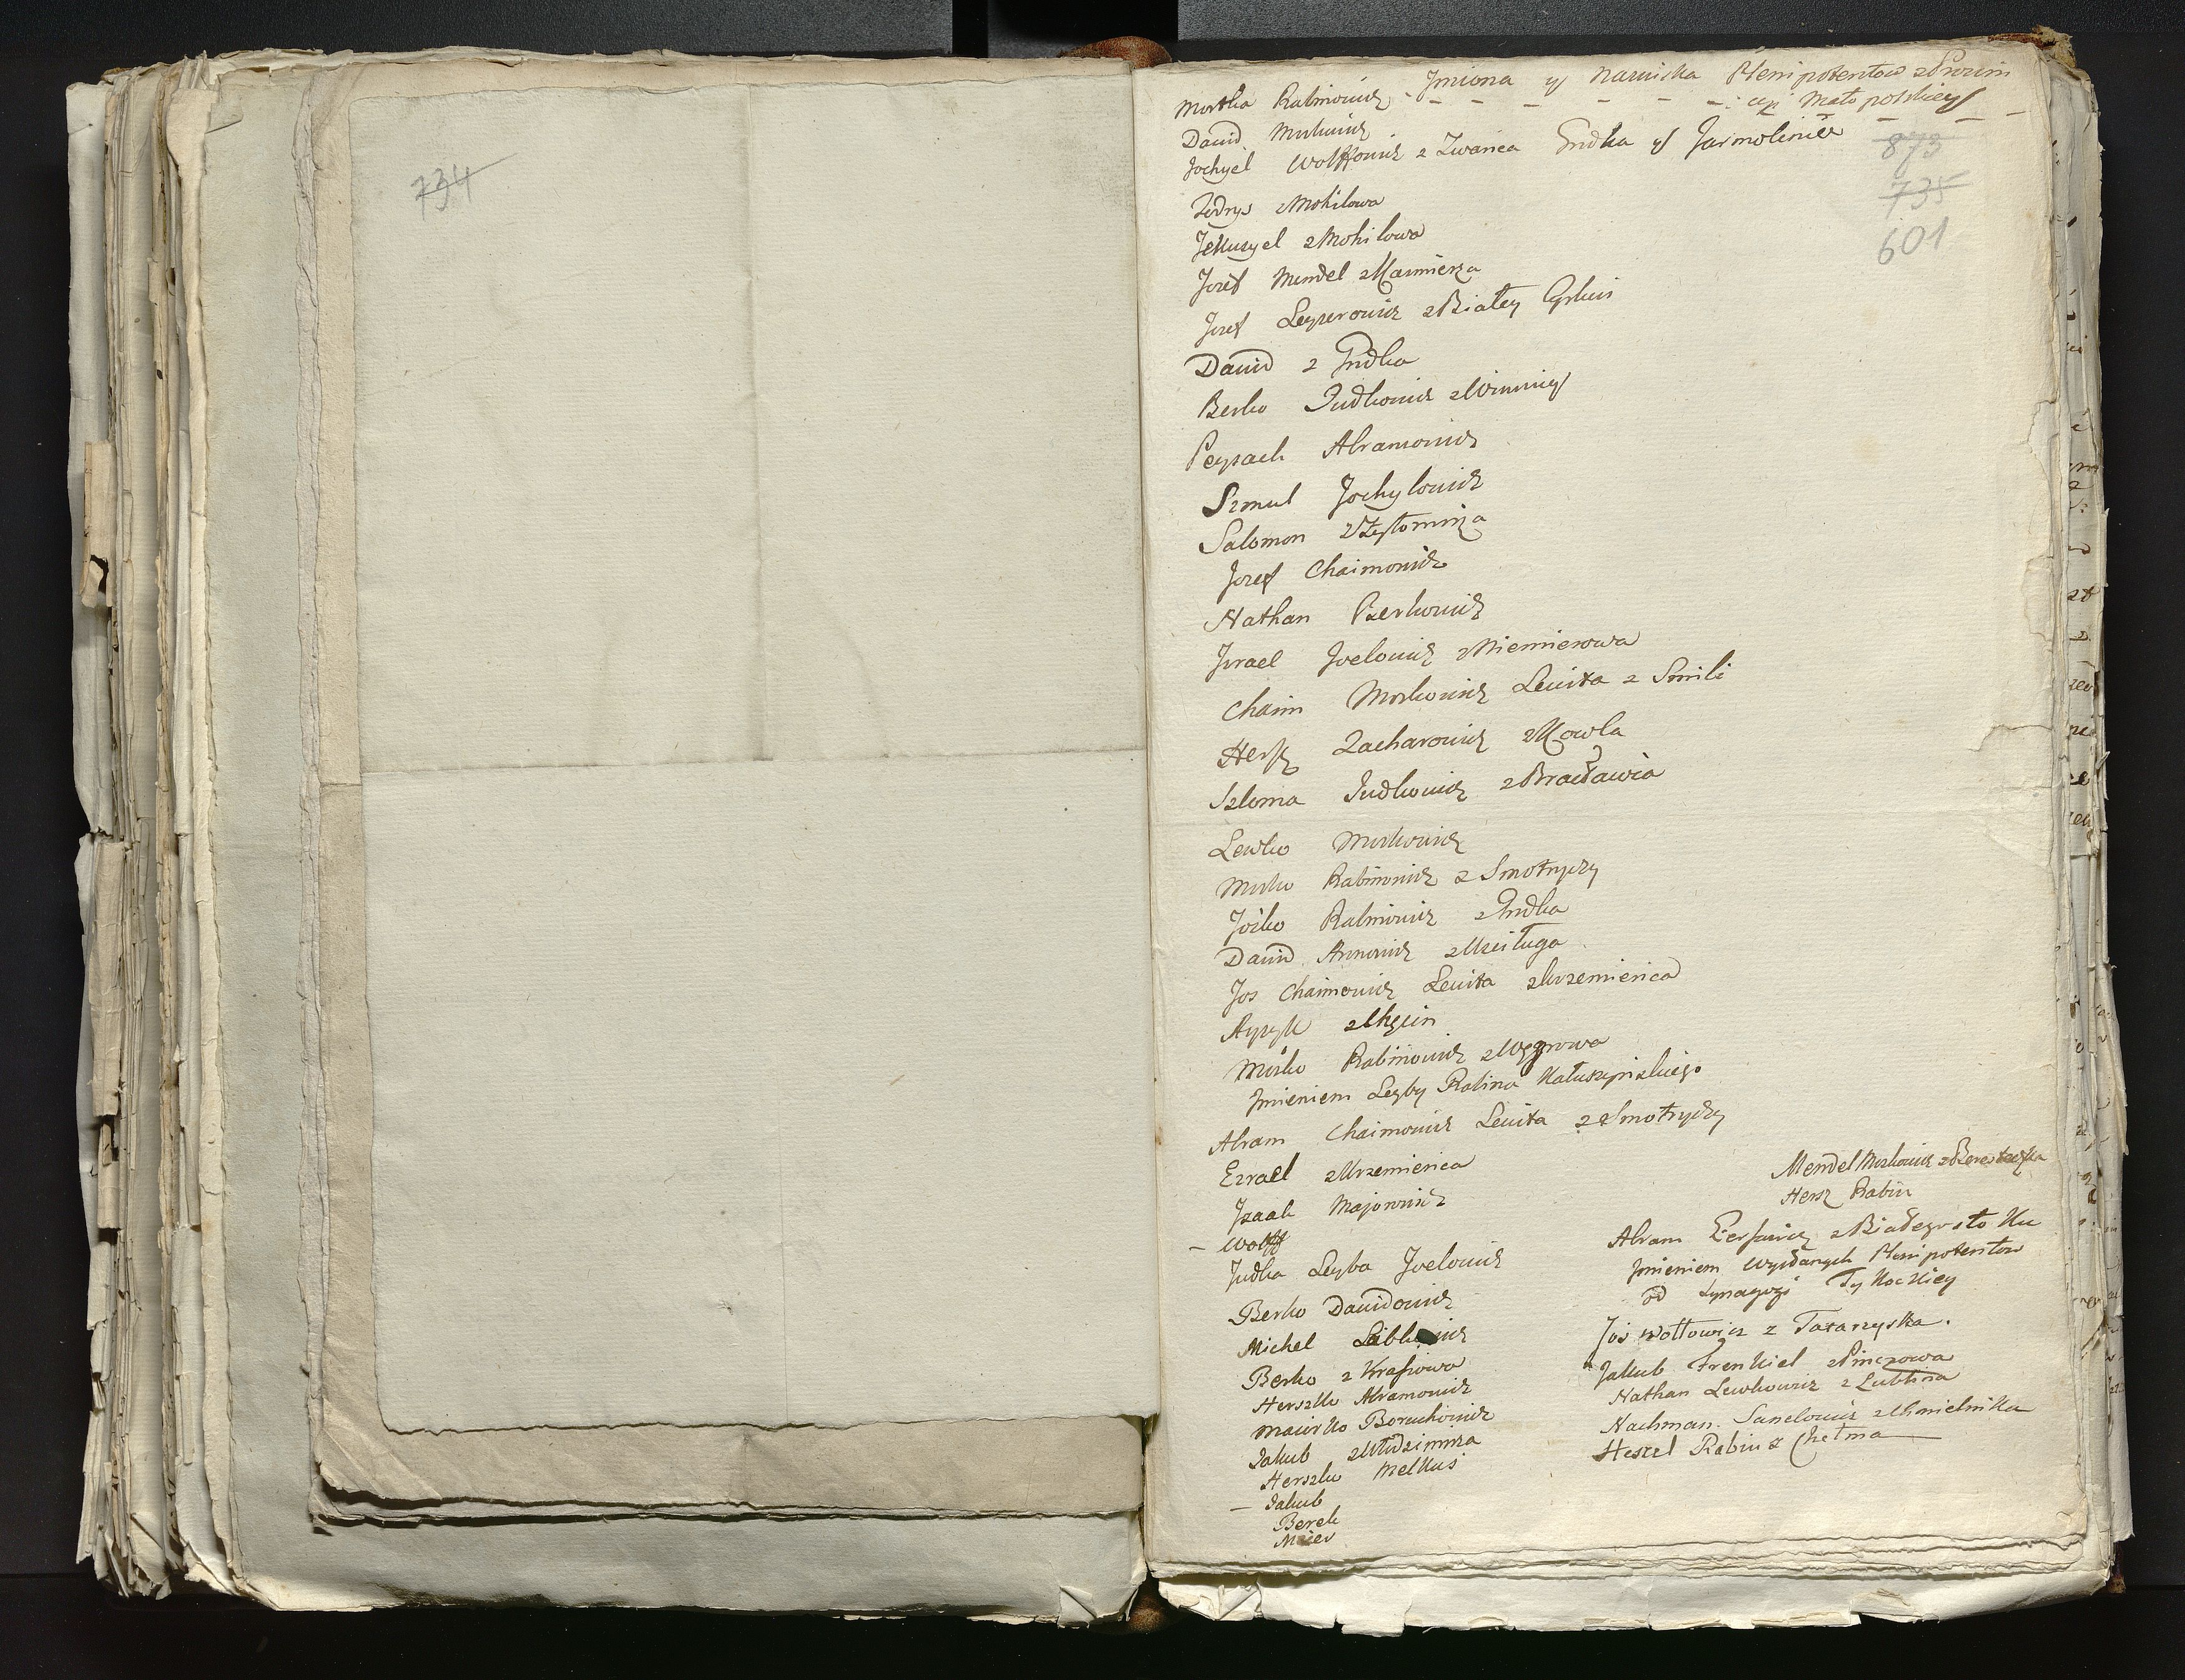 734
Imiona y Nazwiska Plenipotentow z Prowin
cyi Mało polskiey
873
735
601
Mortka Rabinowicz
Dawid Morkowicz
Jochyel Wolffowicz z Zwańca Grudka y Jarmoliniec
z Mohilowa
Jekuzyel z Mohilowa
Jozef Mendel z Kazmierza
Jozef Leyzerowicz z Białey Cerkwi
Dawid z Grudka
Berko Judkowicz z Winnicy
Peysach Abramowicz
Szmul Jochylowicz
Salomon z Zytomirza
Jozef Chaimowicz
Nathan Berkowicz
Izrael Joelowicz z Niemirowa
Chaim Morkowicz Lewita z Smili
Hersz Zacharowicz z Kowla
Szloma Judkowicz z Bracławia
Lewko Morkowicz
Morko Rabinowicz z Smotryczy
Jośko Rabinowicz z Grudka
Dawid Aronowicz z Usciługa
Jos Chaimowicz Lewita z Krzemieńca
Ayzyk
Mośko Rabinowicz z Węgrowa
Imieniem Leyby Rabina Kałuszyńskiego
Abram Chaimowicz Lewita z Smotryczy
Ezrael z Krzemieńca
Izaak Majorowicz
- Wolff
Judka Leyba Joelowicz
Berko Dawidowicz
Michel
Berko z
Herszko Abramowicz
Maiorko Boruchowicz
Jakub z Włodzimirza
Herszko Melkus
- Jakub
Berek
Meier
Mendel Morkowicz z Beresteczka
Hersz Rabin
Abram z Białegostoku
Imieniem wysłanych Plenipotentow
od Synagogi Tykockiey
Jos Wołowicz z Tatarzyska.
Jakub Frenkiel z Pinczowa
Nathan Lewkowicz z Lublina
Nachman Sanelowicz z Chmielnika
Heszel Rabin z Chełma